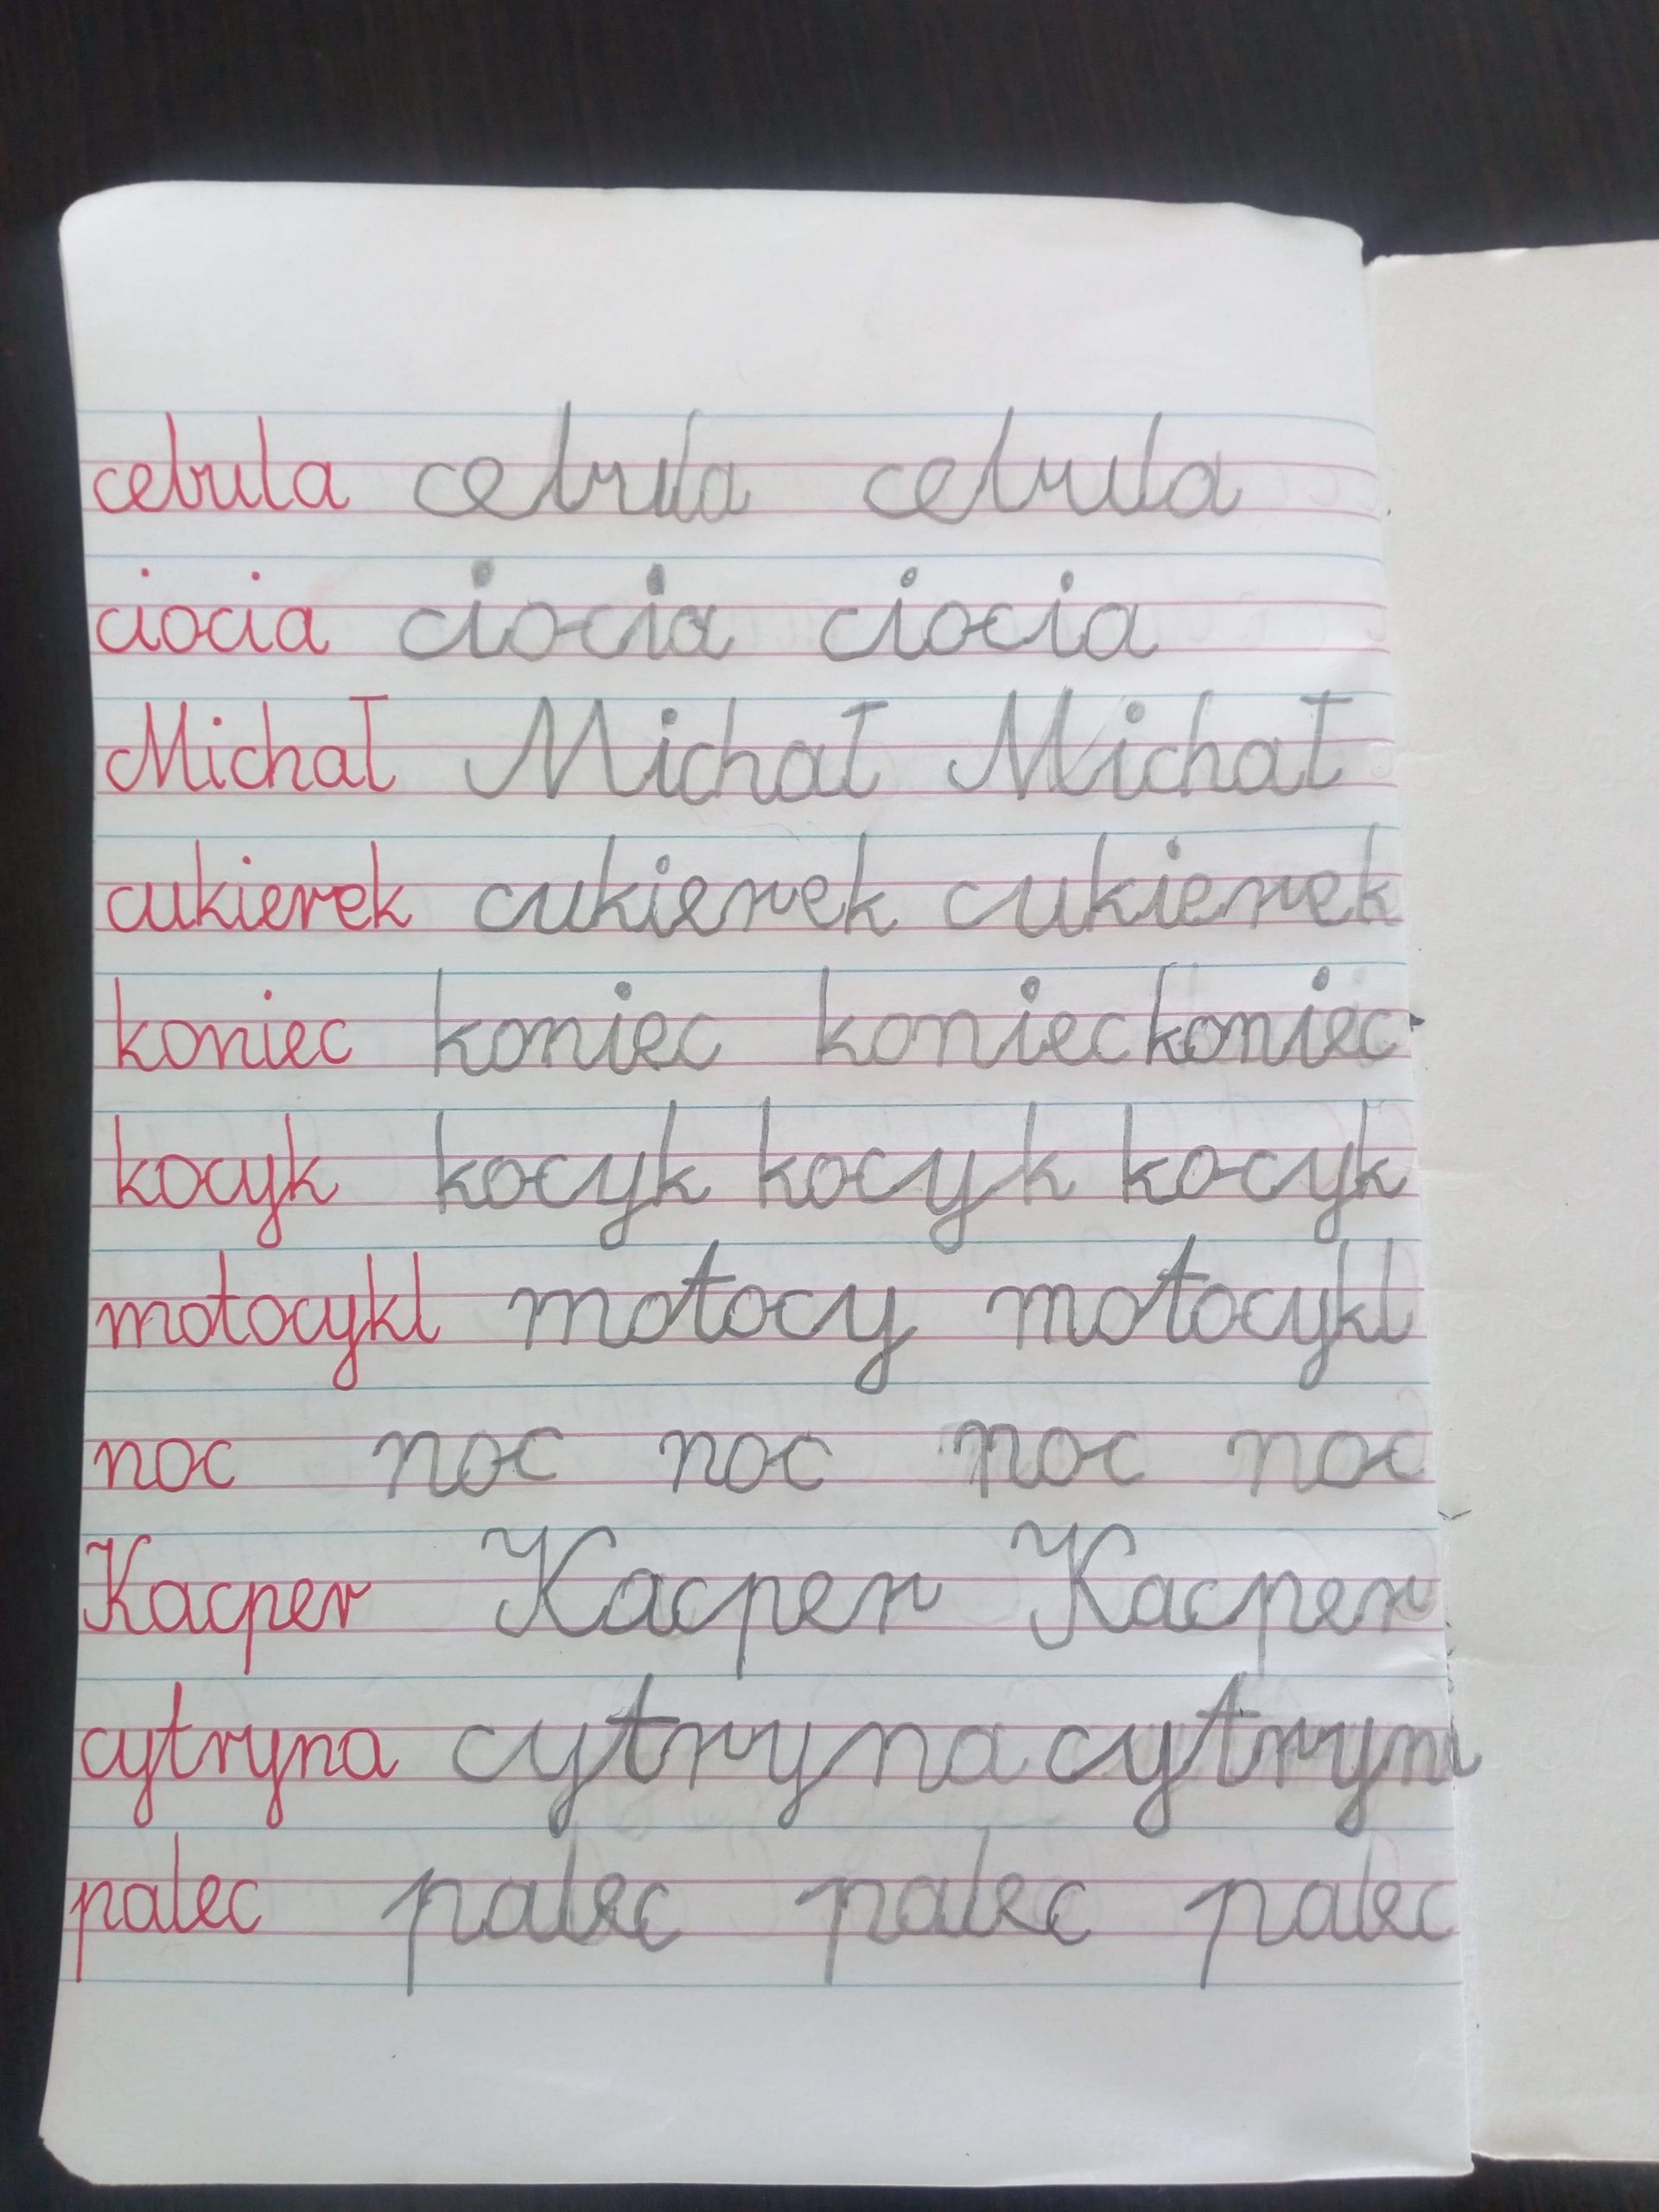 cebula cebula cebula
ciocia ciocia ciocia
Michał Michał Michał
cukierek cukierek cukierek
koniec koniec koniec koniec
kocyk kocyk kocyk kocyk
motocykl motocy motocykl
noc noc noc noc noc
Kacper Kacper Kacper
cytryna cytryna cytryni
palec palec palec palec